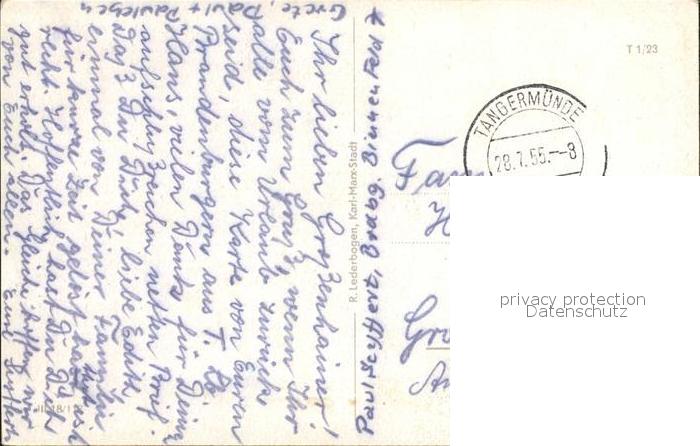 Ihr lieben Großenhainer!
Euch zum Gruß, wenn Ihr
alle vom Urlaub zurück
seid, diese Karte von Euren
Brandenburgern aus T.
Hans, vielen Dank für Deinen
aufschlußreichen netten Brief.
Daß Du Dich, liebe Edith,
einmal von Deiner Familie
für kurze Zeit gelöst hast, ist
recht. Hoffentlich hast Du Dich
gut erholt. Das Gleiche hoffen wir
von Euch allen. Eure
Grete, Paul + Paulchen
Paul Seyffert, Brdbg. Binnenfeld
R. Lederbogen, Karl-Marx-Stadt
T 1/23
TANGERMÜNDE
28.7.55.--8
Fam
H
Gro
privacy protection
Datenschutz